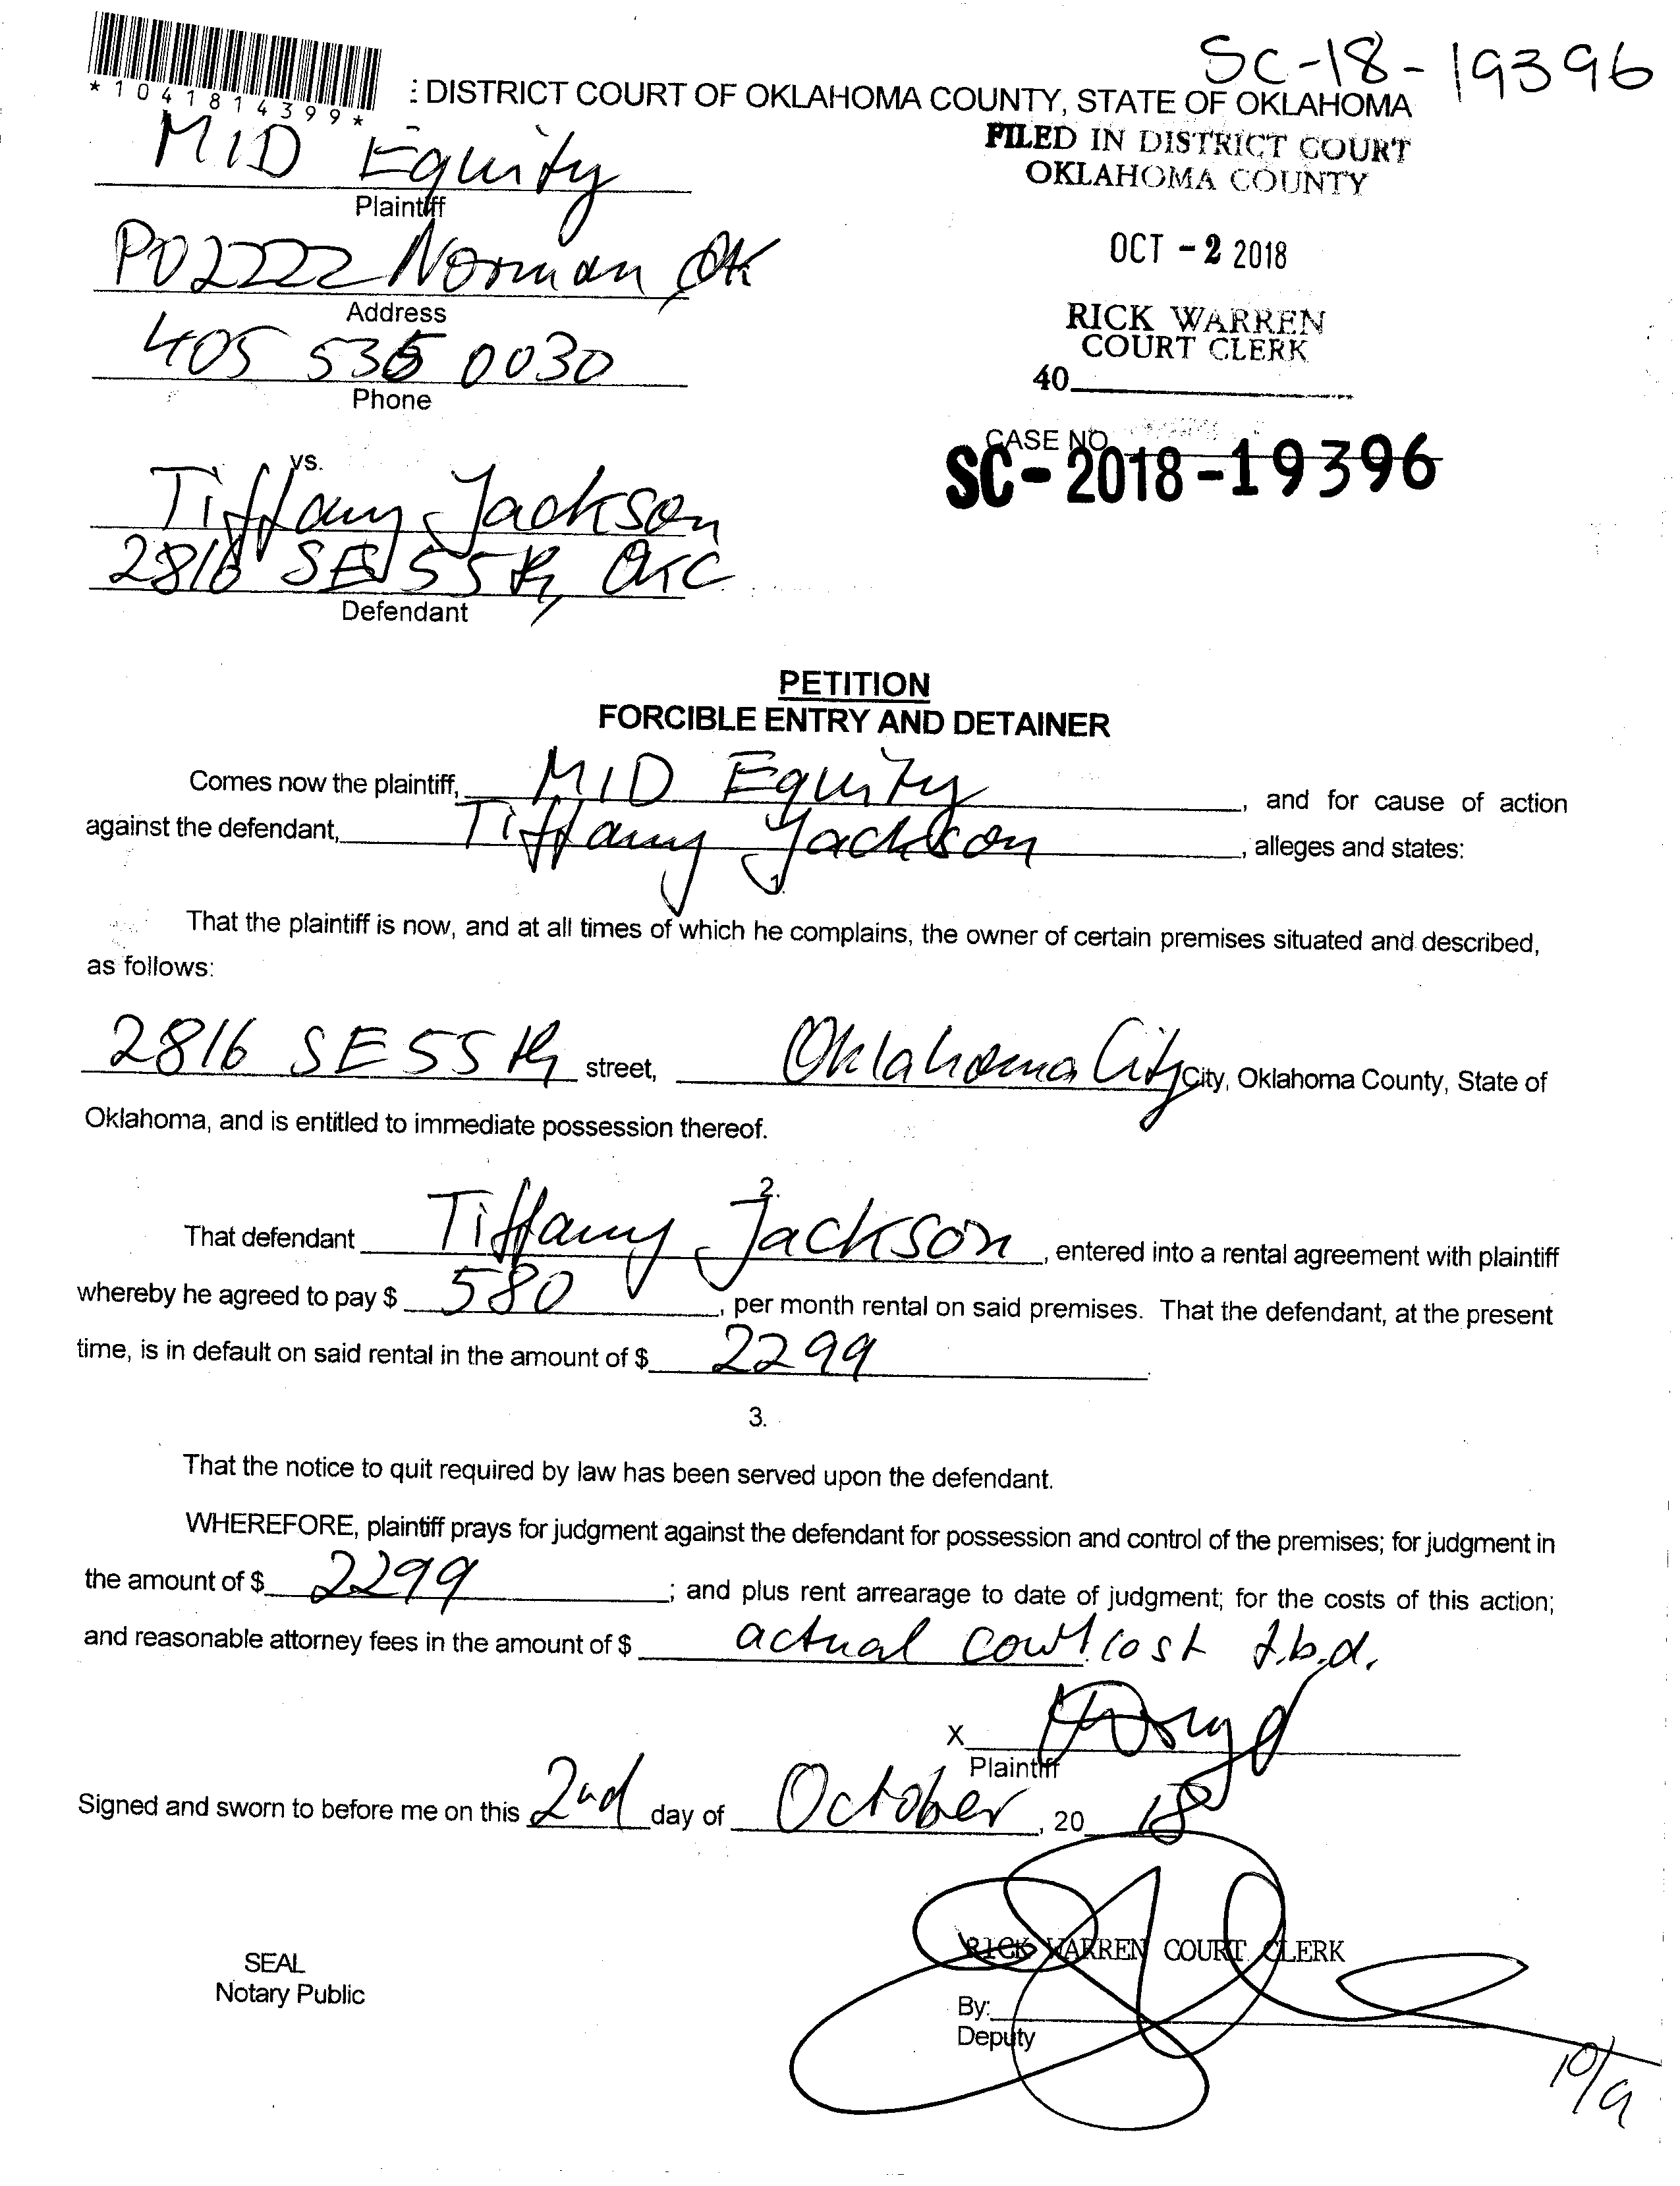 SC-18-19396
*1041814399*
: DISTRICT COURT OF OKLAHOMA COUNTY, STATE OF OKLAHOMA
FILED IN DISTRICT COURT
OKLAHOMA COUNTY
OCT - 2 2018
RICK WARREN
COURT CLERK
40
MID Equity
Plaintiff
PO 2222 Norman OK
Address
405 535 0030
Phone
CASE NO.
SC-2018-19396
vs.
Tiffany Jackson
2816 SE 55th, OKC
Defendant
PETITION
FORCIBLE ENTRY AND DETAINER
Comes now the plaintiff, MID Equity, and for cause of action
against the defendant, Tiffany Jackson, alleges and states:
1.
That the plaintiff is now, and at all times of which he complains, the owner of certain premises situated and described,
as follows:
2816 SE 55th street, Oklahoma City City, Oklahoma County, State of
Oklahoma, and is entitled to immediate possession thereof.
2.
That defendant Tiffany Jackson, entered into a rental agreement with plaintiff
whereby he agreed to pay $ 580, per month rental on said premises. That the defendant, at the present
time, is in default on said rental in the amount of $ 2299.
3.
That the notice to quit required by law has been served upon the defendant.
WHEREFORE, plaintiff prays for judgment against the defendant for possession and control of the premises; for judgment in
the amount of $ 2299; and plus rent arrearage to date of judgment; for the costs of this action;
and reasonable attorney fees in the amount of $ actual court cost t.b.d.
X
Plaintiff
Signed and sworn to before me on this 2nd day of October, 20 18
RICK WARREN COURT CLERK
SEAL
Notary Public
By:
Deputy
10/9